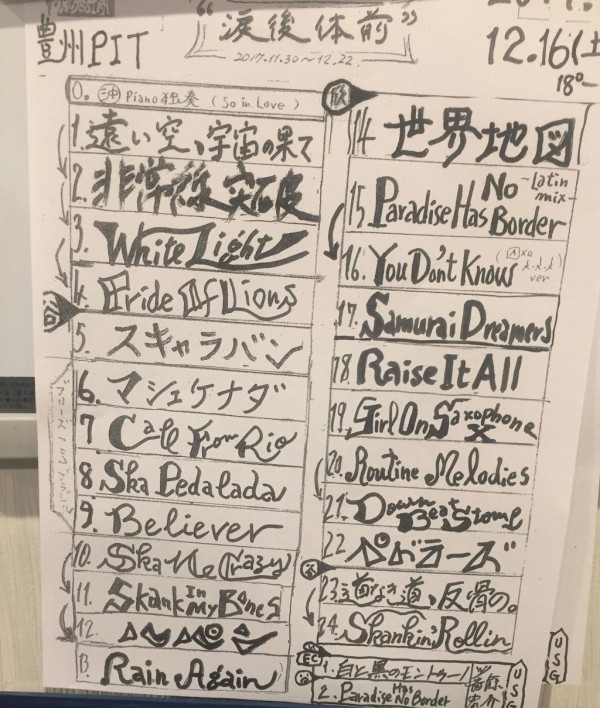 豊洲PIT
“涙後体前”
2017.11.30~12.22.
12.16(土
18°-
0. 沖 Piano独奏 (So in Love)
1. 遠い空、宇宙の果て
2. 非常線突破
3. White Light
4. Pride Of Lions
5. スキャラバン
6. マシュケナダ
7 Call From Rio
8. Ska Pedalada
9. Believer
10. Ska Me Crazy
11. Skank In My Bones
12.
13. Rain Again
欣
14. 世界地図
15 Paradise Has No Border -Latin mix-
16. You Don't Know ver
17. Samurai Dreamers
18. Raise It All
19. Girl On Saxophone X
20. Routine Melodies
21. Down Beat Stomp
22. ペドラーズ
谷
23. 道なき道、反骨の。
24. Skankin' Rollin'
USG
EC
1. 白と黒のモントゥーノ
2. Paradise Has No Border
USG